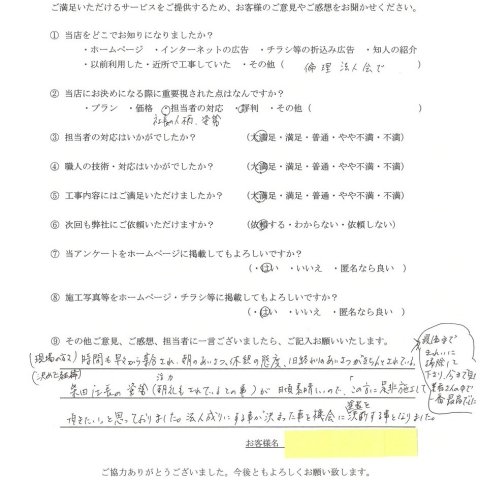 ご満足いただけるサービスをご提供するため、お客様のご意見やご感想をお聞かせください。
① 当店をどこでお知りになりましたか？
・ホームページ ・インターネットの広告 ・チラシ等の折込み広告 ・知人の紹介
・以前利用した・近所で工事していた ・その他（ 倫理法人会で ）
② 当店にお決めになる際に重要視された点はなんですか？
・プラン ・価格 ・担当者の対応 ・評判 ・その他（ ）
社長の人柄、姿勢
③ 担当者の対応はいかがでしたか？ （大満足・満足・普通・やや不満・不満）
④ 職人の技術・対応はいかがでしたか？ （大満足・満足・普通・やや不満・不満）
⑤ 工事内容にはご満足いただけましたか？ （大満足・満足・普通・やや不満・不満）
⑥ 次回も弊社にご依頼いただけますか？ （依頼する・わからない・依頼しない）
⑦ 当アンケートをホームページに掲載してもよろしいですか？
（・はい ・いいえ ・匿名なら良い ）
⑧ 施工写真等をホームページ・チラシ等に掲載してもよろしいですか？
（・はい ・いいえ ・匿名なら良い ）
⑨ その他ご意見、ご感想、担当者に一言ございましたら、ご記入お願いいたします。
(現場の方々) 時間も早くから来られ、朝のあいさつ、休憩の態度、1日終わりのあいさつがきちんとされている。
(決めた経緯) 柴田社長の姿勢(朝礼もされているとの事)が日頃素晴しいので、この方に是非施工して
頂きたいと思っておりました。法人成りにする事が決まった事を機会に塗装を決断する事となりました。
現場まで
きれいに
掃除して
下さり、今まで見た
業者さんの中で
一番最高でした
お客様名
ご協力ありがとうございました。今後ともよろしくお願い致します。